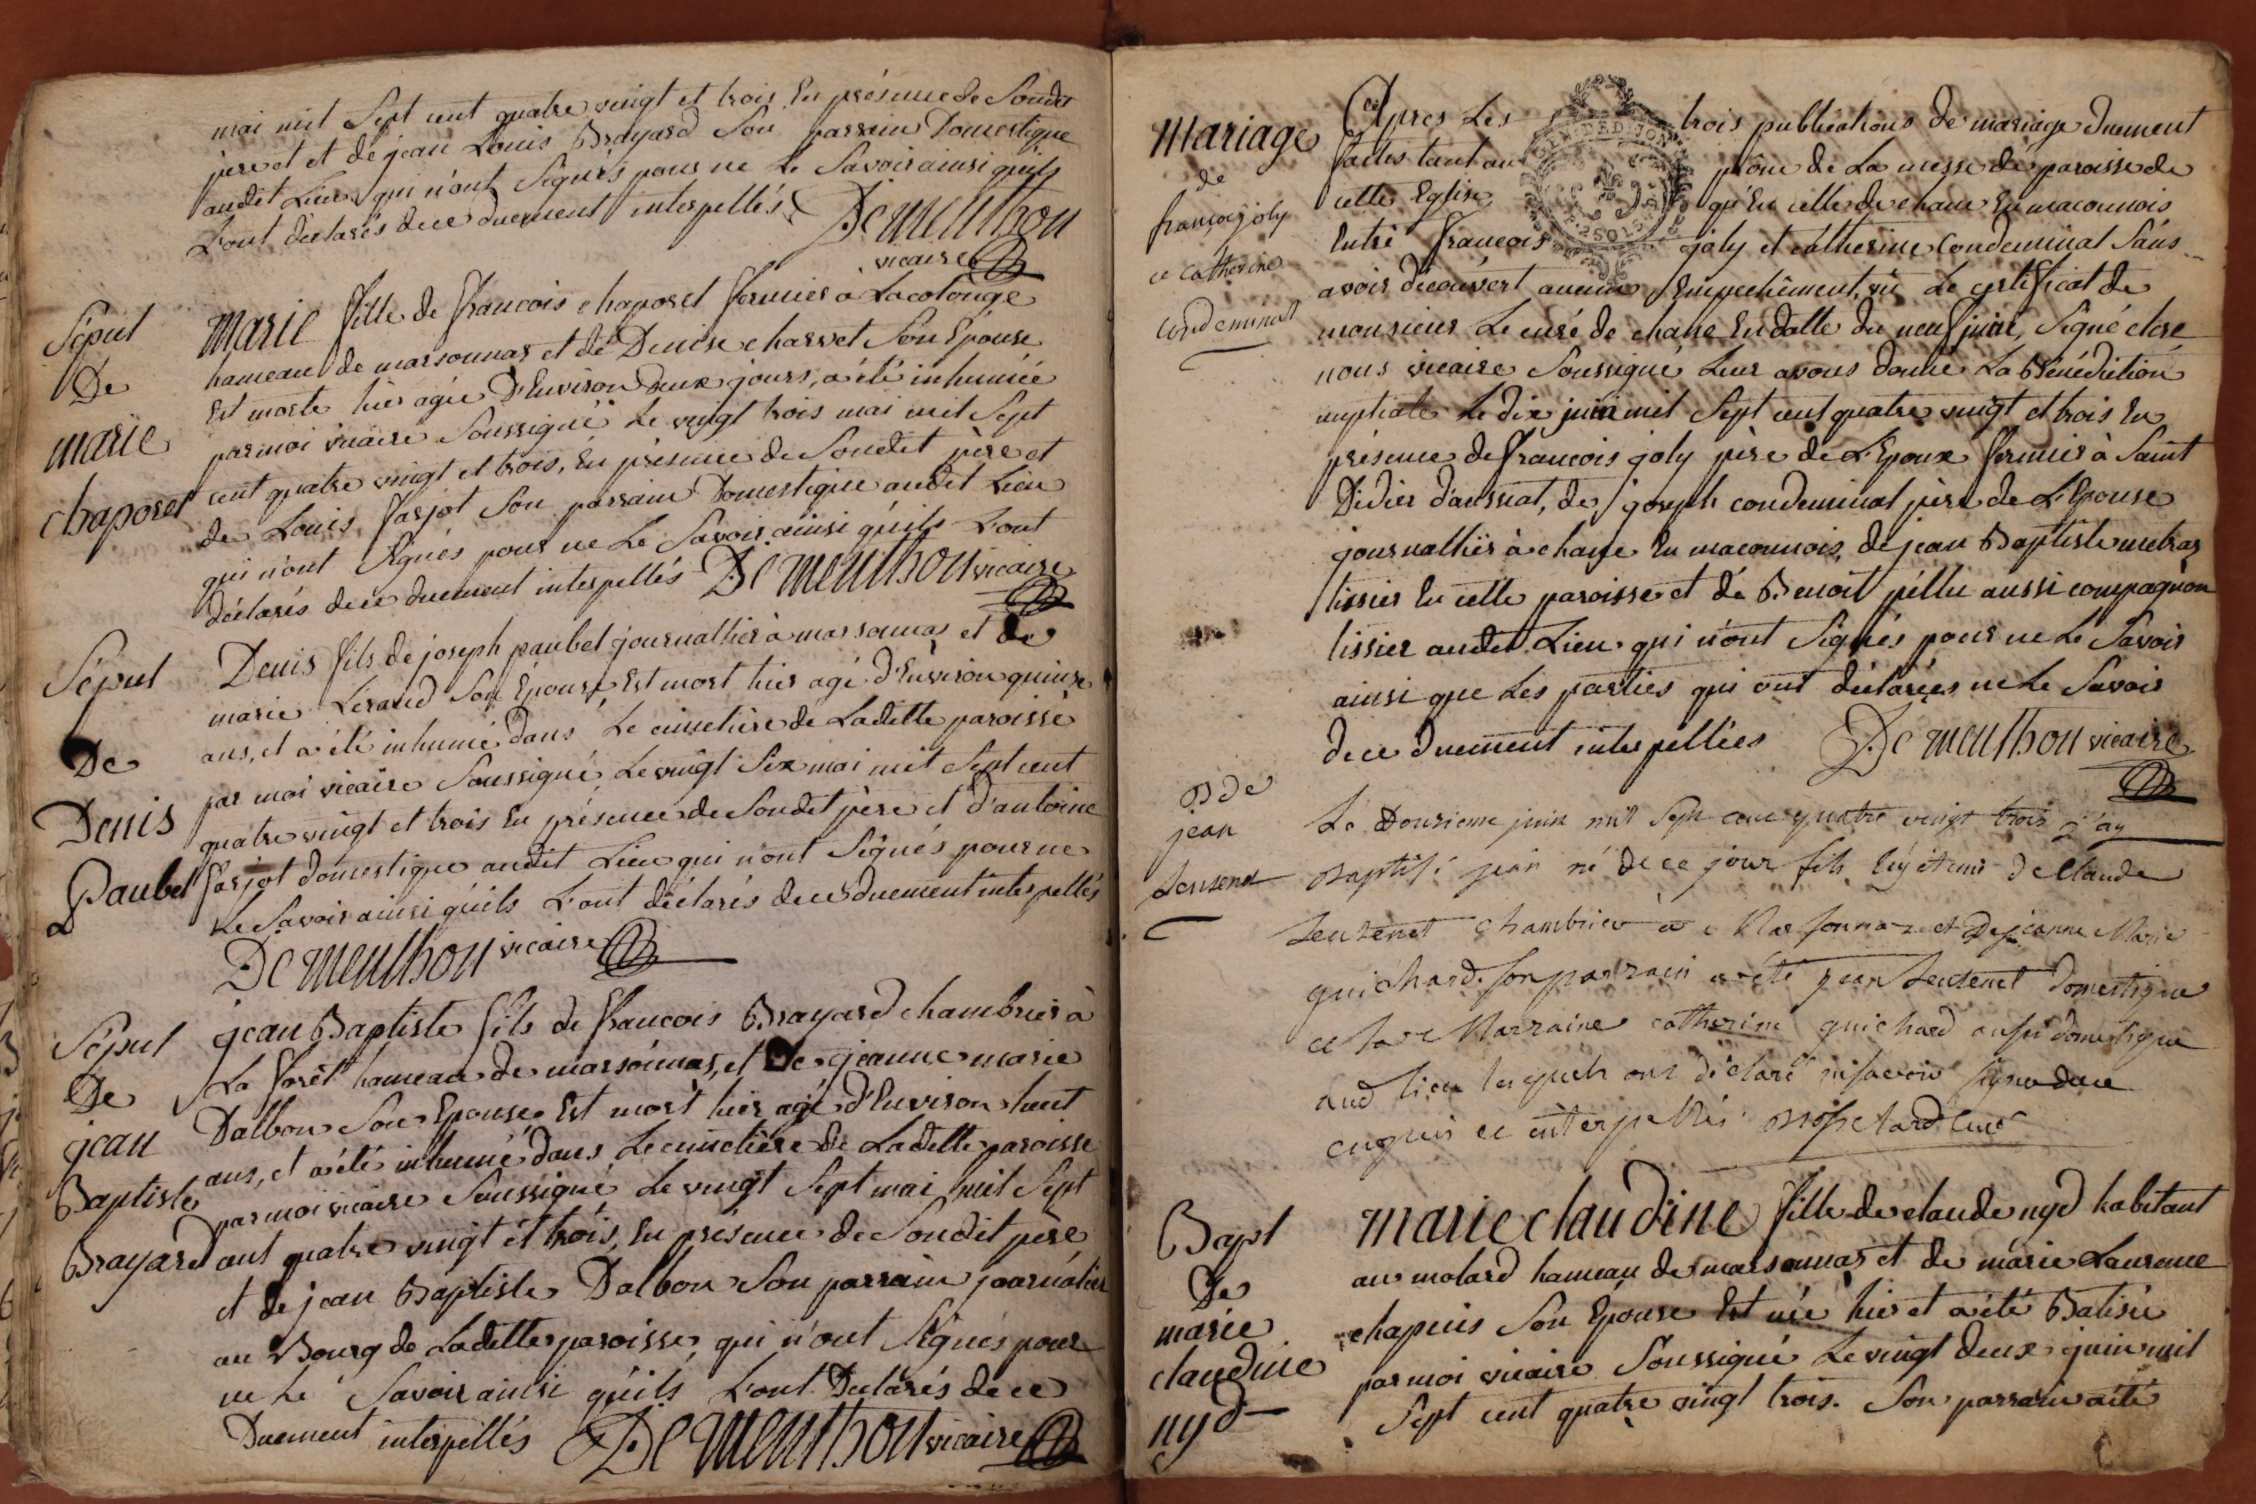 mai mil Sept cent quatre vingt et trois En présence de Sondet
père et et de jean Louis Brayard Son parrain Domestique
audit Lieu qui n'ont Signés pour ne Le Savoir ainsi quils
L'ont déclarés de ce duement interpellés Dementhon
vicaire
Sépul
De
marie
chaporet
Marie fille de francois chaporet fermier a Lacolonge
hameau de marsonnas et de Denise charvet Son Epouse
Est morte hier agée D'Environ deux jours, a été inhumée
par moi vicaire Soussigné Le vingt trois mai mil Sept
cent quatre vingt et trois, En présence de Sondit père et
de Louis farjot Son parrain Domestique audit Lieu
qui n'ont Signés pour ne Le Savoir ainsi quils L'ont
déclarés de ce duement interpellés Dementhon vicaire
Sépul
De
Denis
Paubel
Denis fils de joseph paubel journallier à marsonnas et de
marie Leraud Son Epouse Est mort hier agé d'Environ quinze
ans, et a été inhumé dans Le cimetière de Laditte paroisse
par moi vicaire Soussigné Le vingt Six mai mil Sept cent
quatre vingt et trois En présence de Sondit père et d'antoine
farjot domestique audit Lieu qui n'ont Signés pour ne
Le Savoir ainsi quils L'ont déclarés de ce duement interpellés
Dementhon vicaire
Sépul
De
jean
Baptiste
Brayard
jean Baptiste fils de francois Brayard chambrier à
La forêt hameau de marsonnas, et De jeanne marie
Dalbon Son Epouse Est mort hier agé d'Environ huit
ans, et a été inhumé dans Le cimetière de Laditte paroisse
par moi vicaire Soussigné Le vingt Sept mai mil Sept
cent quatre vingt et trois, En présence de Sondit père
et de jean Baptiste Dalbon Son parrain journalier
au Bourg de Laditte paroisse qui n'ont Signés pour
ne Le Savoir ainsi quils L'ont Déclarés de ce
Duement interpellés Dementhon vicaire
Mariage
de
françois joly
et catherine
Condeminal
GEN. DE DIJON
2 SOLS
Apres Les trois publications de mariage duement
faites tant au prône de La messe de paroisse de
cette Eglise qu'En celle de chane En maconnois
Entre francois joly et catherine Condeminal Sans
avoir découvert aucun Empechement, vu Le certificat de
monsieur Le curé de chane En datte du neuf juin, Signé clere
nous vicaire Soussigné Leur avons donné La Bénédiction
nuptiale Le dix juin mil Sept cent quatre vingt et trois En
présence de francois joly père de L'Epoux fermier à Saint
Didier d'aussiat, de joseph condeminal père de L'Epouse
journallier à chane En maconnois, de jean Baptiste metras
tissier En cette paroisse et de Benoit pellu aussi compagnon
tissier audit Lieu qui n'ont Signés pour ne Le Savoir
ainsi que Les parties qui ont déclarées ne Le Savoir
de ce duement interpellées Dementhon vicaire
B de
jean
Le Douzieme juin mil Sept cent quatre vingt trois j'ay
Baptisé jean né de ce jour fils légitime de Claude
chambrier a Marsonnaz et de jeanne Marie
guichard. son parrain a été jean domestique
et la Marraine catherine guichard aussi domestique
aud lieu lesquels ont déclaré ne savoir signer de ce
enquis et interpellés
Bapt
De
marie
claudine
nyd
Marie claudine fille de claude nyd habitant
au molard hameau de marsonnas et de marie Laurence
chapuis Son Epouse Est née hier et a été Batisée
par moi vicaire Soussigné Le vingt deux juin mil
Sept cent quatre vingt trois. Son parrain a été